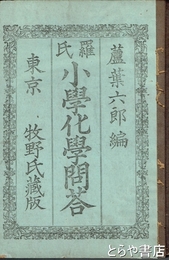 蘆葉六郎編
羅氏
小學化學問荅
東京
牧野氏藏版
とらや書店